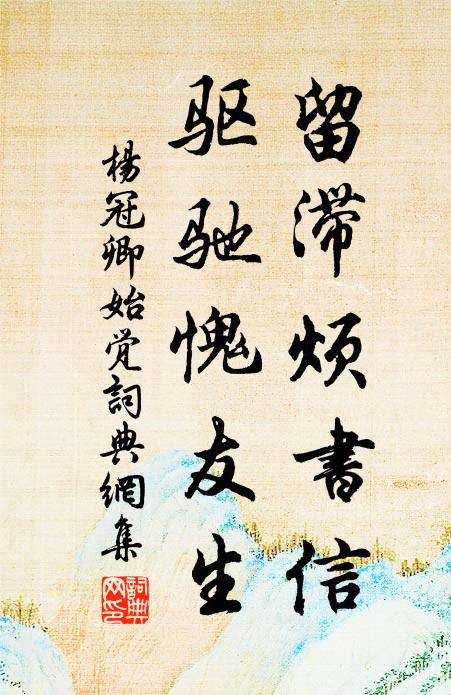 留滞烦書信
驱驰愧友生
楊冠卿始觉詞典網集
詞典
网印